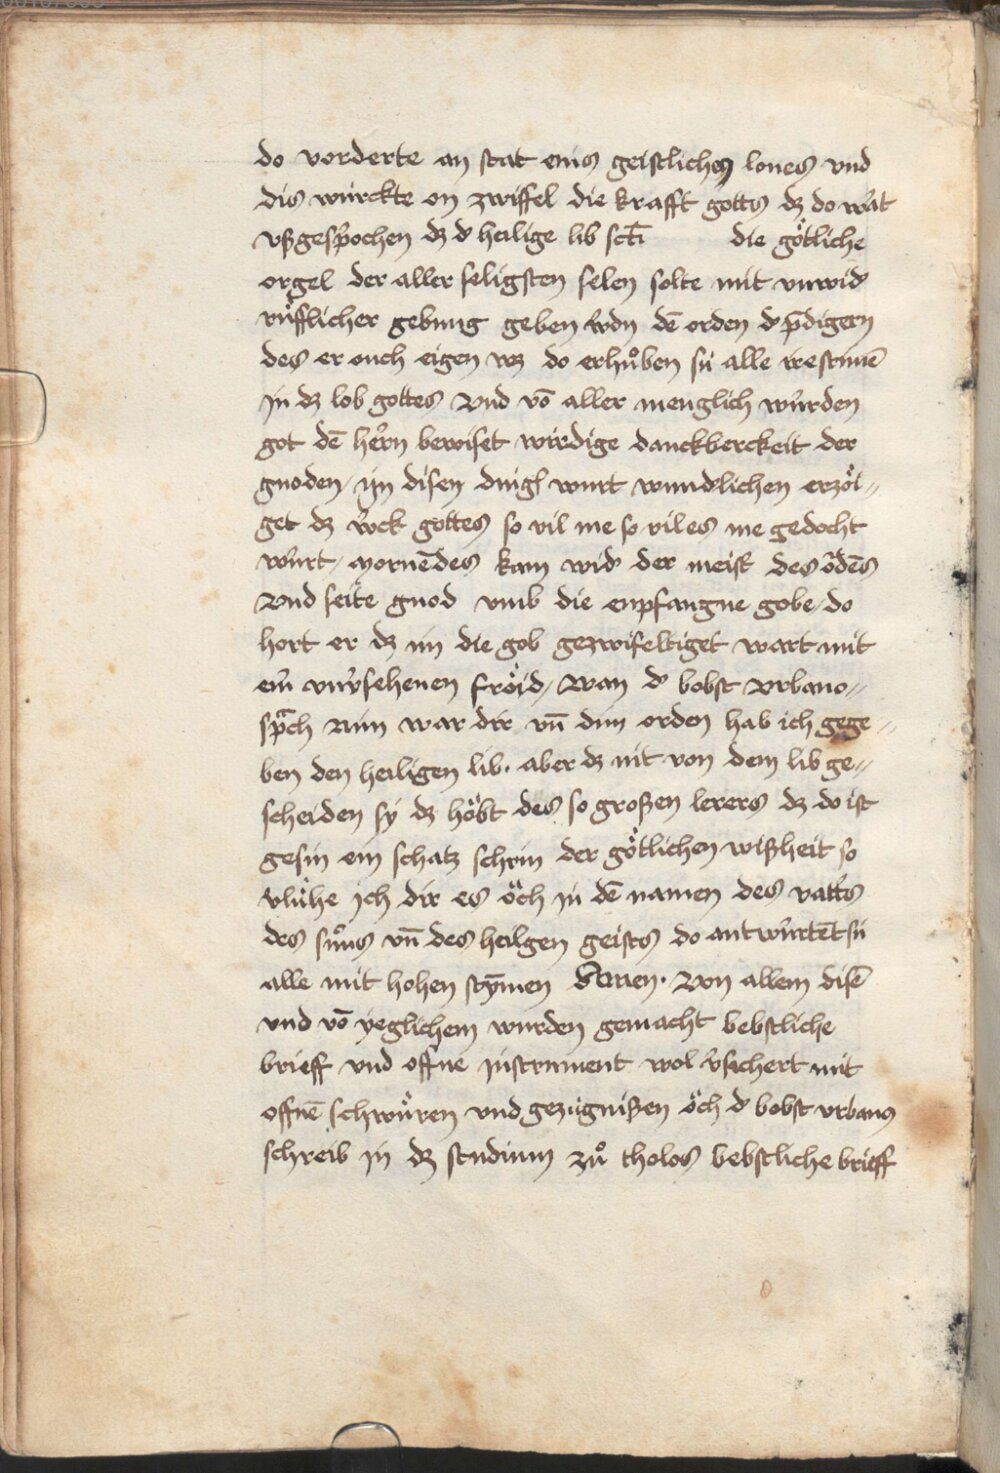 do vorderte an stat eins geistliches lones vnd
dis würckte on zwiffel die krafft gottes dz do wart
vßgesprochen dz d' heilige lib scti die götliche
orgel der aller seligsten selen solte mit vnwid'
rüfflicher gebung geben w'dn dē orden d' p̄digern
des er ouch eigen wz do erhůben sü alle ire stimē
jn dz lob gottes Vnd vō aller menglich würden
got dē hern bewiset wirdige danckberckeit der
gnoden / jn disen ding wurt wund'lichen erzöi=
get dz w'ck gottes so vil me so vil es me gedocht
würt / mornēdes kam wid' der meist' des ordēs
Vnd seite gnod vmb die enpfangne gobe / do
hort er dz im die gob gezwifeltiget wart mit
eim vnv'sehenen fröid / Wan d' bobst Vrbano=
sprach Nim war dir vn̄ dim orden hab ich gege=
ben den heiligen lib. aber dz nit von dem lib ge=
scheiden sy dz höbt des so großen lerers dz do ist
gesin ein schatz schrin der götlichen wißheit so
v'lühe jch dir es öch jn dē namen des vatters
des suns vn̄ des heilgen geists do antwürtēt sü
alle mit hohen stȳmen Amen. Von allem disē
vnd vō yeglichem wurden gemacht bebstliche
brieff vnd offne jnstrument wol v'sichert mit
offnē schwüren vnd gezügnißen öch d' bobst vrbanus
schreib jn dz studium zů tholos bebstliche brieff